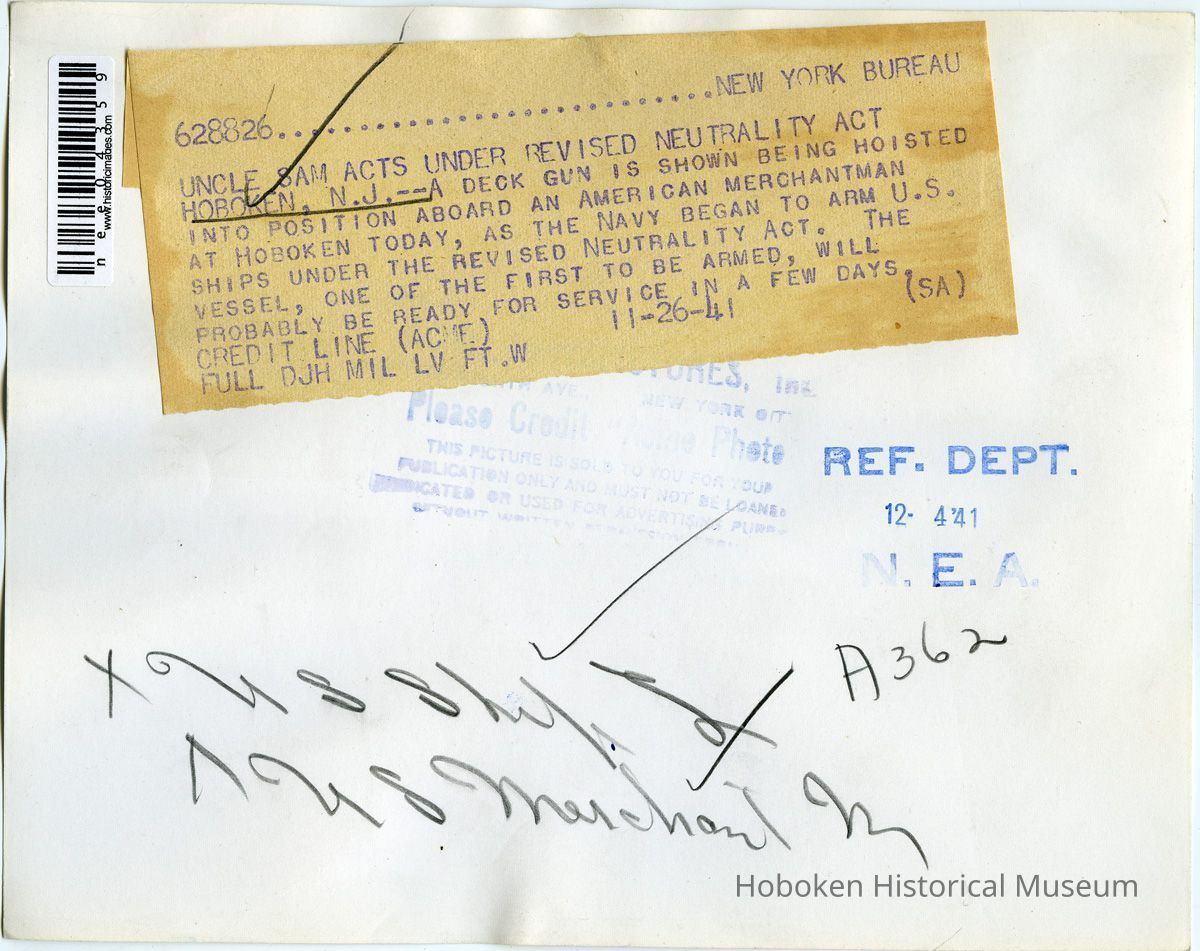 628826..............................NEW YORK BUREAU
UNCLE SAM ACTS UNDER REVISED NEUTRALITY ACT
HOBOKEN, N.J.--A DECK GUN IS SHOWN BEING HOISTED
INTO POSITION ABOARD AN AMERICAN MERCHANTMAN
AT HOBOKEN TODAY, AS THE NAVY BEGAN TO ARM U.S.
SHIPS UNDER THE REVISED NEUTRALITY ACT. THE
VESSEL, ONE OF THE FIRST TO BE ARMED, WILL
PROBABLY BE READY FOR SERVICE IN A FEW DAYS.
CREDIT LINE (ACME) 11-26-41 (SA)
FULL DJH MIL LV FT.W
nee04359
www.historicimages.com
INC.
AVE., NEW YORK CIT
Please Credit "Acme Photo
THIS PICTURE IS SOLD TO YOU FOR YOUR
PUBLICATION ONLY AND MUST NOT BE LOANED
OR USED FOR ADVERTISING
REF. DEPT.
12- 4'41
N. E. A.
A362
X U S Ships
U S Merchant M
Hoboken Historical Museum